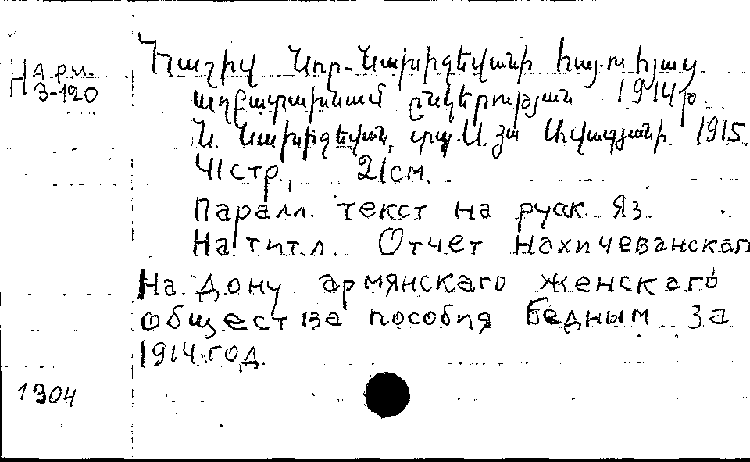 На рм.
3-120
Հաշիվ Նոր-Նախիջեվանի հայուհյաց
աղքատախնամ ընկերության 1914թ.
Ն. Նախիջեվան, տպ. Ս. Յա. Ավագյանի 1915.
41стр, 21см.
Паралл. текст на русск. яз.
На титл. Отчет Нахичеванскаго
На Дону армянскаго женскаго
общества пособия бедным за
1914 год.
1304